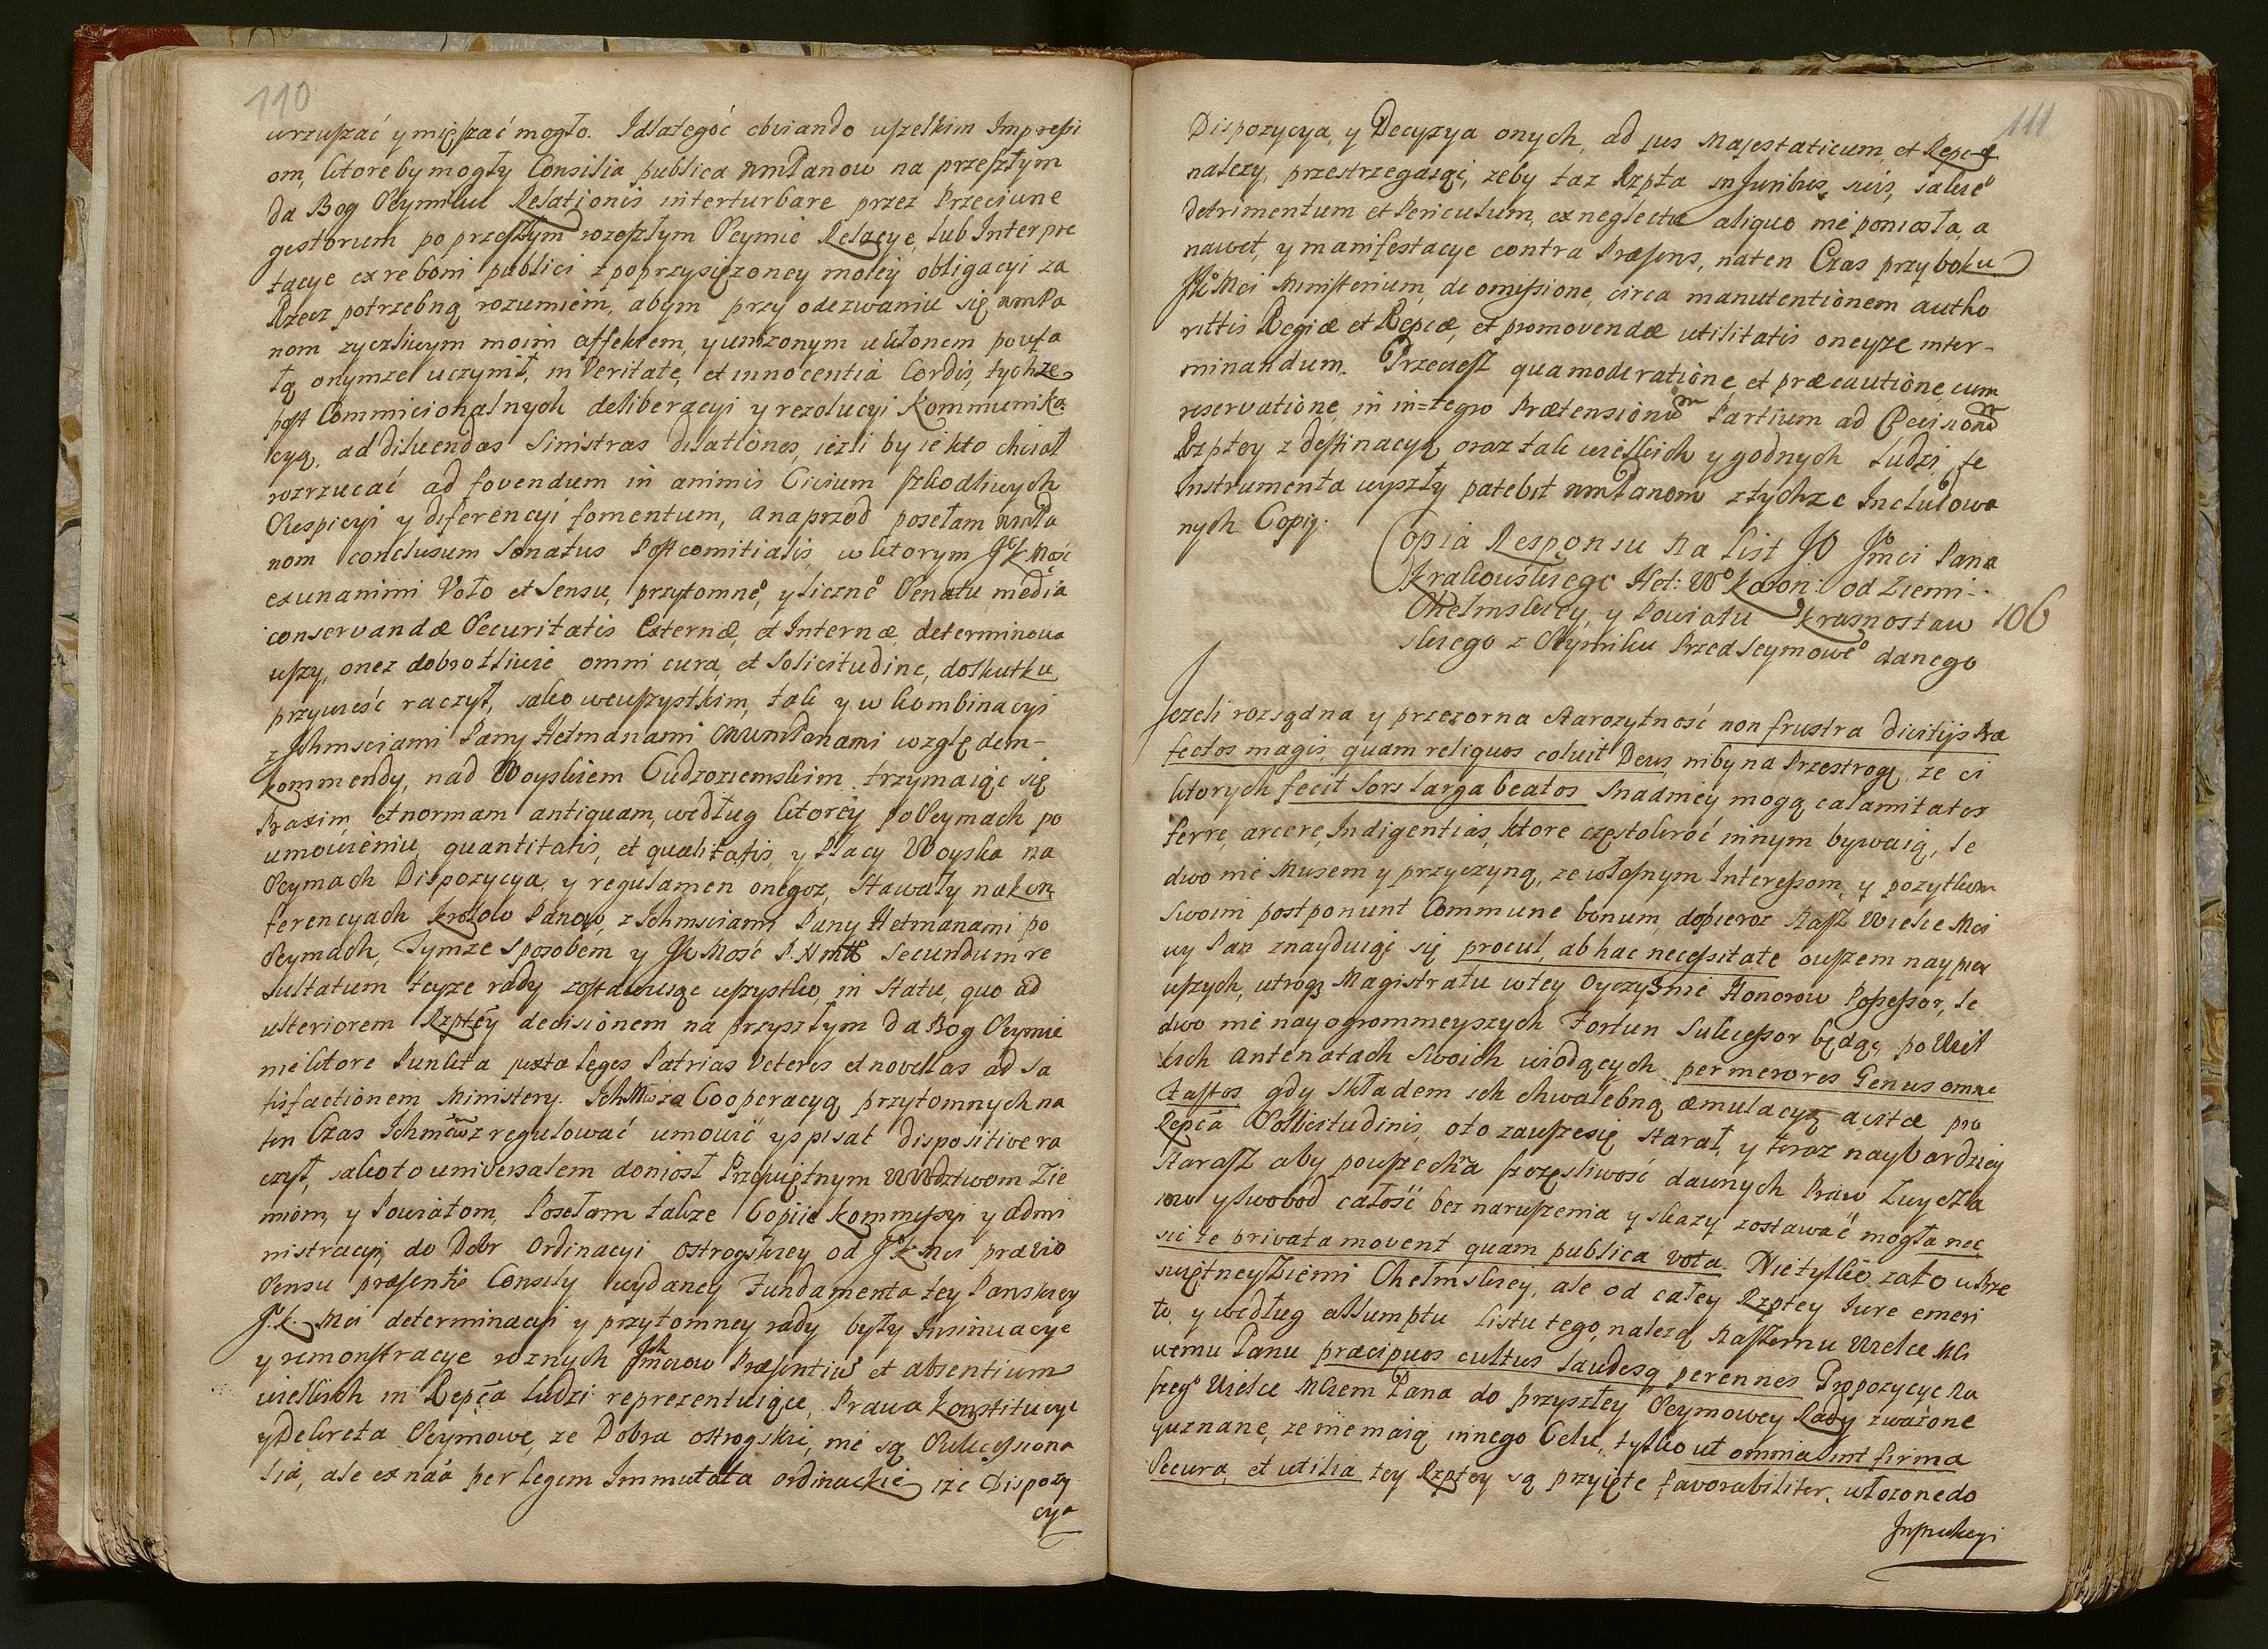 110
wrzuszać y mięszać mogło. Idlategóć obviando wszelkim Impressi
om, ktore by mogły Consilia publica wmPanow na przeszłym
da Bog Seymiku Relationis interturbare przez Przeciwne
gestorum po przeszłym rozeszłym Seymie Relacye, lub Interpre
tacye ex re boni publici z poprzysięzoney moiey obligacyi za
Rzecz potrzebną rozumiem, abym przy odezwaniu się wmPa
nom zyczliwym moim affektem, y unizonym ukłonem poufa
łą onymze uczynił, in Veritate, et innocentia Cordis, tychze
post Commicionalnych deliberacyi y rezolucyi Kommunika
cyą, ad diluendas Sinistras delationes, iezli by ie kto chciał
rozrzucać ad fovendum in animis Civium szkodliwych
Suspicyi y diferencyi fomentum, a naprzod posełam wmPa
nom conclusum Senatus Post comitialis, w ktorym JK Mość
ex unanimi Voto et Sensu, przytomne°, y liczne° Senatu media
conservandæ Securitatis Externæ, et Internæ determinowa
wszy, onez dobrotliwie omni cura, et Solicitudine, do skutku
przywieść raczył, iako we wszystkim, tak y w kombinacyi
z Ichmsciami Pany Hetmanami wmPanami względem-
kommendy, nad Woyskiem Cudzoziemskim trzymaiąc się
Praxim, et normam antiquam, według ktorey po Seymach po
umowieniu quantitatis, et qualitatis, y Płacy Woyska na
Seymach Dispozycya, y regulamen onegoz, Stawały na kon
ferencyach Krolow Panow, z Ichmsciami Pany Hetmanami po
Seymach, Tymze Sposobem y JK Mość P. N. Secundum re
sultatum teyze rady zostawuiąc wszystko, in Statu, quo ad
ulteriorem Rzptey decisionem na przyszłym da Bog Seymie
niektore Punkta juxta leges Patrias Veteres et novellas ad Sa
tisfactionem Ministery. IchMw za Cooperacyą przytomnych na
ten Czas Ichmćiow z regulować umowić y spisać dispositive ra
czył, iako to universalem doniosł Przeświętnym WWdztwom Zie
miom, y Powiatom, Posełam takze Copiie Kommissyi y admi
nistracyi, do Dobr Ordinacyi Ostrogskiey od J°K Mci prævio
Sensu præsentis Consily wydaney Fundamenta tey Panskiey
J.K. Mci determinacyi y przytomney rady były Insinuacye
y remonstracye roznych Ich Mciow Præsentiu et absentium
wielkich in Repca ludzi reprezentuiące, Prawa Konstitucye
y Dekreta Seymowe, ze Dobra ostrogskie, nie są Sukcessiona
lia, ale ex nãa per legem Immutata ordinackie, ize Dispozy
cya
111
Dispozycya, y Decyzya onych, ad jus Majestaticum, et Repcæ
nalezy, przestrzegaiąc, zeby taz Rzpta in Juribus suis, iakie°
detrimentum et Periculum, ex neglectu aliquo nie poniosła, a
nawet, y manifestacye contra Præsens, na ten Czas przy boku
JK Mci Ministerium, de omissione, circa manutentionem autho
rittis Regiæ et Repcæ, et promovendæ utilitatis oneyze inter-
minandum. Przecież qua moderatione et præcautione, cum
reservatione in in=tegro Prætensionu Partium ad Decisione
Rzptey z destinacyą oraz tak wielkich y godnych ludzi, te
Instrumenta wyszły patebit wmPanom z tychze Includowa
nych Copiy.
Copia Responsu Na List JO Jmci Pana
Krakowskiego Het: W° Koron: od Ziemi
Chełmskiey, y Powiatu Krasnostaw
skiego z Seymiku Przed Seymowe° danego
106
Iezeli rozsądna y przezorna starozytność non frustra divitijs Præ
fectos magis, quam reliquos coluit Deus, niby na Przestrogę, ze ci
ktorych fecit Sors larga beatos Snadniey mogą calamitates
ferre, arcere, Indigentias, ktore częstokroć innym bywaią, le
dwo nie Musem y przyczyną, ze własnym Interessom, y pozytkom
Swoim postponunt Commune bonum, dopieroz Nasz Wielce Mci
wy Pan znayduiąc się procul, ab hac necessitate owszem naypier
wszych, utroq Magistratu w tey Oyczyznie Honorow Possessor, le
dwo nie nayogromnieyszych Fortun Sukcessor będąc, po Wiel
kich Antenatach Swoich wiodących per merores Genus omne
Fastos gdy Skladem ich chwalebną æmulacyą avitæ pro
Repca Sollicitudinis, oto zawsze się Starał, y teraz naybardziey
starasz aby powszechna szczęsliwość dawnych Praw Zwycza
iow y swobod całość bez naruszenia y skazy zostawać mogła nec
sic te privata movent quam publica vota. Nietylko za to u Prze
świętney Ziemi Chełmskiey, ale od całey Rzptey Iure emeri
to, y według assumptu listu tego, nalezą Naszemu Wielce Mci
wemu Panu præcipuos cultus laudesq perennes Propozycye Na
szeg° Wielce MCiem Pana do przyszłey Seymowey Rady zwazone
y uznane, ze nie maią innego Celu, tylko ut omnia sint firma
Secura, et utilia tey Rzptey są przyięte favorabiliter, włozone do
Instrukcyi